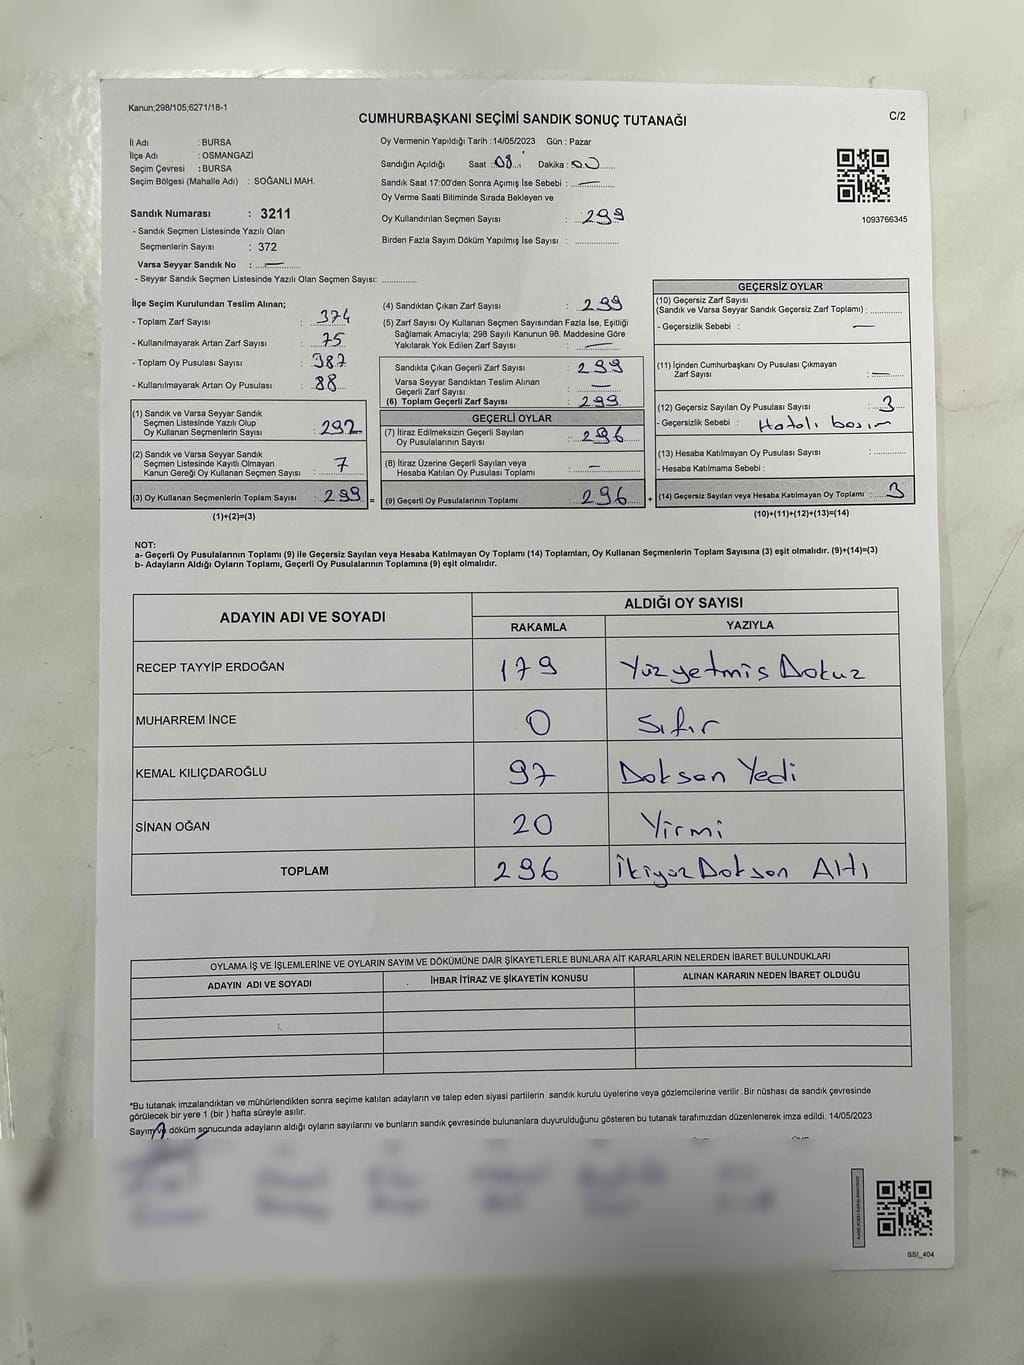 Kanun;298/105,6271/18-1
CUMHURBAŞKANI SEÇİMİ SANDIK SONUÇ TUTANAĞI
C/2
İl Adı : BURSA
İlçe Adı : OSMANGAZİ
Seçim Çevresi : BURSA
Seçim Bölgesi (Mahalle Adı) : SOĞANLI MAH.
Sandık Numarası : 3211
- Sandık Seçmen Listesinde Yazılı Olan
Seçmenlerin Sayısı : 372
Varsa Seyyar Sandık No : —
- Seyyar Sandık Seçmen Listesinde Yazılı Olan Seçmen Sayısı: ............
Oy Vermenin Yapıldığı Tarih : 14/05/2023 Gün : Pazar
Sandığın Açıldığı Saat : 08 Dakika : 00
Sandık Saat 17:00'den Sonra Açımış İse Sebebi : —
Oy Verme Saati Bitiminde Sırada Bekleyen ve
Oy Kullandırılan Seçmen Sayısı : 299
Birden Fazla Sayım Döküm Yapılmış İse Sayısı : ............
1093766345
İlçe Seçim Kurulundan Teslim Alınan;
- Toplam Zarf Sayısı : 374
- Kullanılmayarak Artan Zarf Sayısı : 75
- Toplam Oy Pusulası Sayısı : 387
- Kullanılmayarak Artan Oy Pusulası : 88
(1) Sandık ve Varsa Seyyar Sandık
Seçmen Listesinde Yazılı Olup
Oy Kullanan Seçmenlerin Sayısı : 292
(2) Sandık ve Varsa Seyyar Sandık
Seçmen Listesinde Kayıtlı Olmayan
Kanun Gereği Oy Kullanan Seçmen Sayısı : 7
(3) Oy Kullanan Seçmenlerin Toplam Sayısı : 299 =
(1)+(2)=(3)
(4) Sandıktan Çıkan Zarf Sayısı : 299
(5) Zarf Sayısı Oy Kullanan Seçmen Sayısından Fazla İse, Eşitliği
Sağlamak Amacıyla; 298 Sayılı Kanunun 98. Maddesine Göre
Yakılarak Yok Edilen Zarf Sayısı : —
Sandıkta Çıkan Geçerli Zarf Sayısı : 299
Varsa Seyyar Sandıktan Teslim Alınan
Geçerli Zarf Sayısı : —
(6) Toplam Geçerli Zarf Sayısı : 299
GEÇERLİ OYLAR
(7) İtiraz Edilmeksizin Geçerli Sayılan
Oy Pusulalarının Sayısı : 296
(8) İtiraz Üzerine Geçerli Sayılan veya
Hesaba Katılan Oy Pusulası Toplamı : —
(9) Geçerli Oy Pusulalarının Toplamı : 296 +
GEÇERSİZ OYLAR
(10) Geçersiz Zarf Sayısı
(Sandık ve Varsa Seyyar Sandık Geçersiz Zarf Toplamı) : ............
- Geçersizlik Sebebi : —
(11) İçinden Cumhurbaşkanı Oy Pusulası Çıkmayan
Zarf Sayısı : —
(12) Geçersiz Sayılan Oy Pusulası Sayısı : 3
- Geçersizlik Sebebi : Hatalı basım
(13) Hesaba Katılmayan Oy Pusulası Sayısı : ............
- Hesaba Katılmama Sebebi :
(14) Geçersiz Sayılan veya Hesaba Katılmayan Oy Toplamı : 3
(10)+(11)+(12)+(13)=(14)
NOT:
a- Geçerli Oy Pusulalarının Toplamı (9) ile Geçersiz Sayılan veya Hesaba Katılmayan Oy Toplamı (14) Toplamları, Oy Kullanan Seçmenlerin Toplam Sayısına (3) eşit olmalıdır. (9)+(14)=(3)
b- Adayların Aldığı Oyların Toplamı, Geçerli Oy Pusulalarının Toplamına (9) eşit olmalıdır.
ADAYIN ADI VE SOYADI ALDIĞI OY SAYISI
RAKAMLA YAZIYLA
RECEP TAYYİP ERDOĞAN 179 Yüzyetmis Dokuz
MUHARREM İNCE 0 Sıfır
KEMAL KILIÇDAROĞLU 97 Doksan Yedi
SİNAN OĞAN 20 Yirmi
TOPLAM 296 İkiyüz Doksan Altı
OYLAMA İŞ VE İŞLEMLERİNE VE OYLARIN SAYIM VE DÖKÜMÜNE DAİR ŞİKAYETLERLE BUNLARA AİT KARARLARIN NELERDEN İBARET BULUNDUKLARI
ADAYIN ADI VE SOYADI İHBAR İTİRAZ VE ŞİKAYETİN KONUSU ALINAN KARARIN NEDEN İBARET OLDUĞU
*Bu tutanak imzalandıktan ve mühürlendikten sonra seçime katılan adayların ve talep eden siyasi partilerin sandık kurulu üyelerine veya gözlemcilerine verilir .Bir nüshası da sandık çevresinde
görülecek bir yere 1 (bir ) hafta süreyle asılır.
Sayım ve döküm sonucunda adayların aldığı oyların sayılarını ve bunların sandık çevresinde bulunanlara duyurulduğunu gösteren bu tutanak tarafımızdan düzenlenerek imza edildi. 14/05/2023
SSI_404